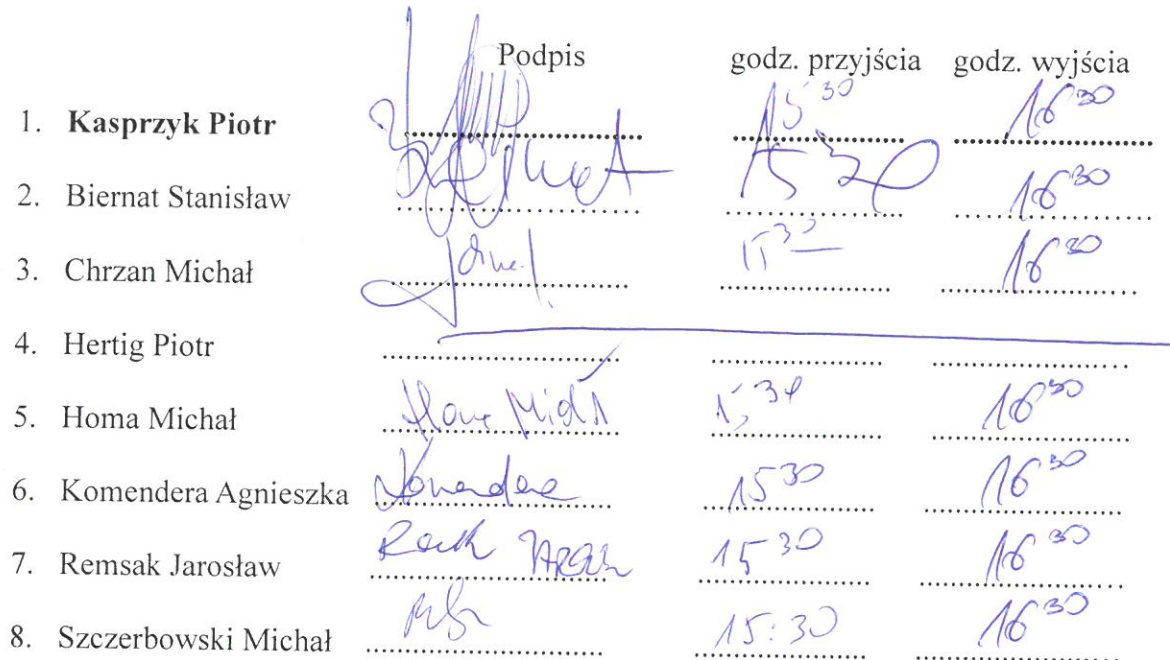 Podpis godz. przyjścia godz. wyjścia
1. Kasprzyk Piotr 15 30 16 30
2. Biernat Stanisław Biernat 15 30 16 30
3. Chrzan Michał 15 30 16 30
4. Hertig Piotr
5. Homa Michał Homa Michał 15 30 16 30
6. Komendera Agnieszka Komendera 15 30 16 30
7. Remsak Jarosław 15 30 16 30
8. Szczerbowski Michał 15:30 16 30